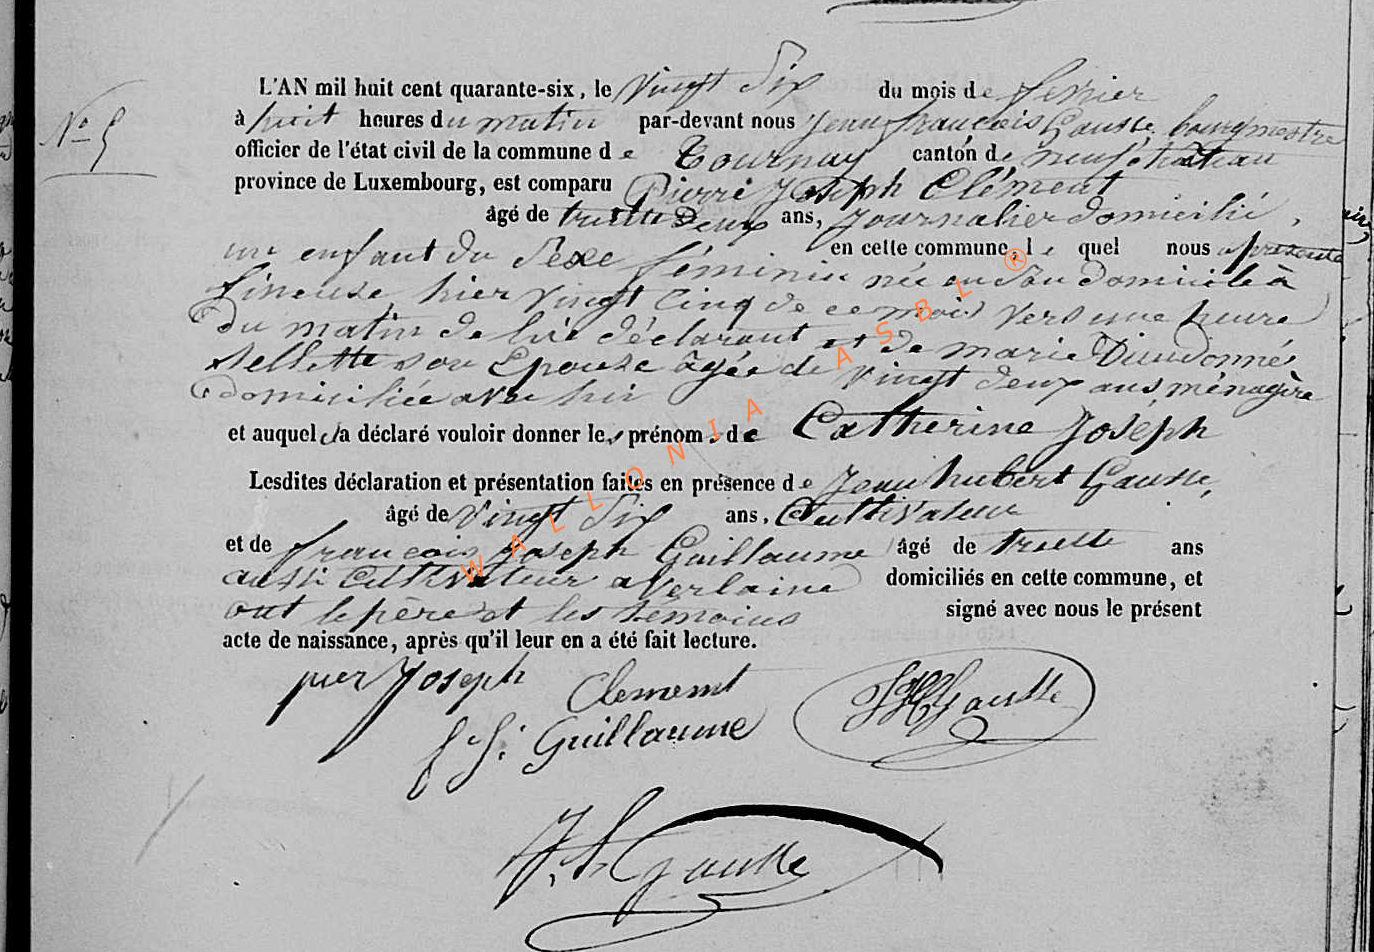 N° 5
L'AN mil huit cent quarante-six, le vingt Six du mois de fevrier
à huit heures du matin par-devant nous jean françois Gausse bourgmestre
officier de l'état civil de la commune de Tournay canton de neufchateau
province de Luxembourg, est comparu Pierre Joseph Clément
âgé de trente Deux ans, Journalier domicilié,
en cette commune, lequel nous a présenté
un enfant du Sexe féminin née en son domicile à
hier vingt Cinq de ce mois vers une heure
du matin de lui déclarant et de marie Dieudonnée
son Epouse âgée de vingt deux ans, ménagère
domiciliée avec lui
et auquel il a déclaré vouloir donner les prénoms de Catherine Joseph
Lesdites déclaration et présentation faites en présence de Jean hubert Gausse,
âgé de vingt Six ans, Cultivateur
et de françois joseph Guillaume âgé de trente ans
aussi Cultivateur a Verlaine domiciliés en cette commune, et
ont le père et les témoins signé avec nous le présent
acte de naissance, après qu'il leur en a été fait lecture.
pier Joseph Clememt
JH Gausse
f. j. Guillaume
J. f. Gausse
WALLONIA ASBL ®